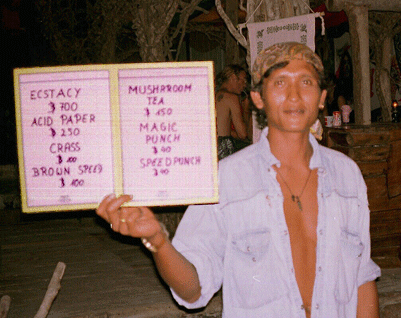 ECSTACY
฿ 700
ACID PAPER
฿ 250
CRASS
฿ 100
BROWN SPEED
฿ 100
MUSHRROOM
TEA
฿ 150
MAGIC
PUNCH
฿ 90
SPEED PUNCH
฿ 90